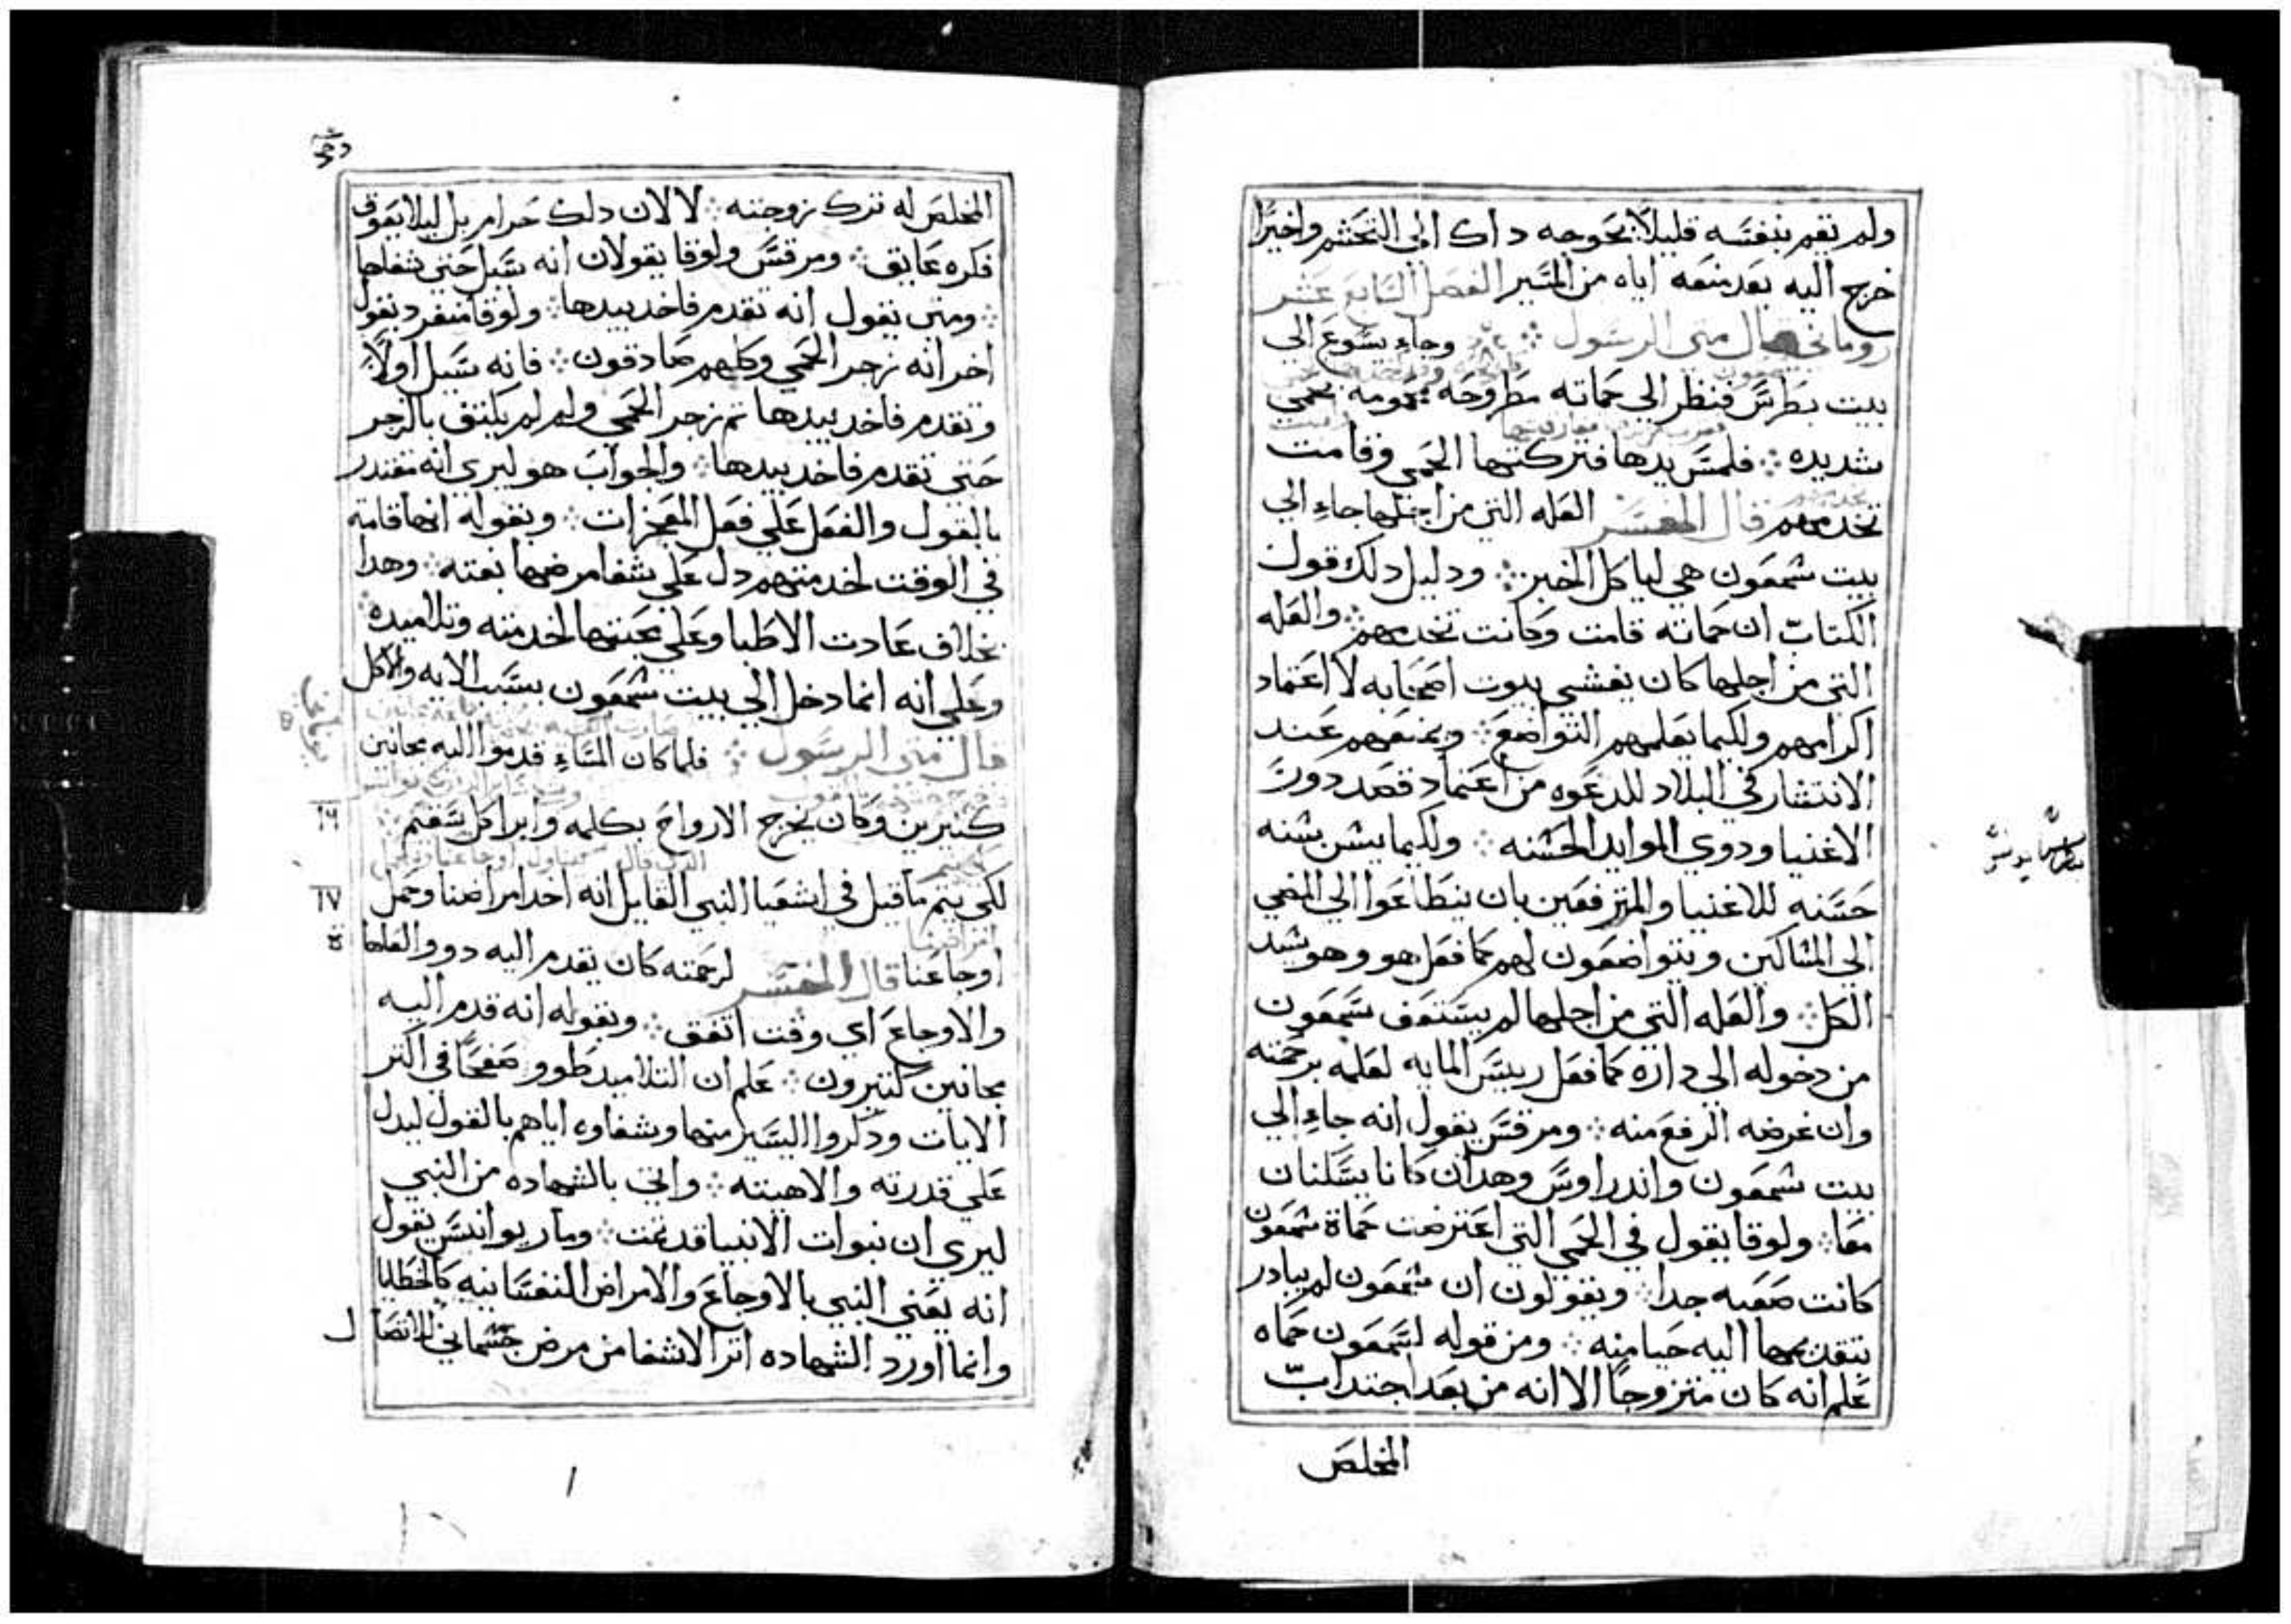 ولم تقم بنفسه قليلاً بحوجه داك الي التجشم واخيرًا
خرج اليه بعد منعه اياه من المسير الفصل السابع عشر
روماني قال متي الرسول وجاء يسوع الي
بيت بطرس فنظر الي حماته مطروحه محمومه بحمي
شديده فلمس يدها فتركتها الحمي وقامت
تخدمهم قال المفسر العله التي من اجلها جاء الي
بيت شمعون هي لياكل الخبز ودليل دلك قول
الكتاب ان حماته قامت وكانت تخدمهم والعله
التي من اجلها كان يغشي بيوت اصحابه لا اعتماد
اكرامهم ولكيما يعلمهم التواضع ويمنعهم عند
الانتشار في البلاد للدعوه من اعتماد قصد دون
الاغنيا ودوي الموايد الحسنه ولكيما يسن سنه
حسنه للاغنيا والمترفعين بان يتطاعوا الي المضي
الي المساكين ويتواضعون لهم كما فعل هو وهو سيد
الكل والعله التي من اجلها لم يستعف شمعون
من دخوله الي داره كما فعل رييس المايه لعلمه برحمته
وان غرضه الرفع منه ومرقس يقول انه جاء الي
بيت شمعون واندراوس وهدان كانا يسكنان
معا ولوقا يقول في الحمي التي اعترضت حماة شمعون
كانت صعبه جدا ويقولون ان شمعون لم يبادر
بتقديمها اليه حيا منه ومن قوله لشمعون حماه
علم انه كان متزوجًا الا انه من بعد اجتداب
المخلص
المخلص له ترك زوجته لا لان دلك حرام بل ليلا يعوق
فكره عايق ومرقس ولوقا يقولان انه سيل حتي شفاها
ومتي يقول انه تقدم فاخد بيدها ولوقا منفرد يقول
اخر انه زجر الحمي وكلهم صادقون فانه سيل اولاً
وتقدم فاخد بيدها تم زجر الحمي ولم لم يكتف بالزجر
حتي تقدم فاخد بيدها والجواب هو ليري انه مقتدر
بالقول والفعل علي فعل المعجزات وبقوله انها قامت
في الوقت لخدمتهم دل علي شفا مرضها بغته وهدا
بخلاف عادت الاطبا وعلي محبتها لخدمته وتلاميده
وعلي انه انما دخل الي بيت شمعون بسبب الايه والاكل
قال متي الرسول فلما كان المساء قدموا اليه مجانين
كتيرين وكان يخرج الارواح بكلمه وابرا كل سقيم
٦٦
لكي يتم ما قيل في اشعيا النبي القايل انه اخد امراضنا وحمل
٦٧
اوجاعنا قال المفسر لرحمته كان يقدم اليه دوو العاها
والاوجاع اي وقت اتفق وبقوله انه قدم اليه
مجانين كتيرون علم ان التلاميد طوو صفحًا في اكتر
الايات ودكروا اليسير منها وشفاوه اياهم بالقول ليدل
علي قدرته والاهيته واتي بالشهاده من النبي
ليري ان نبوات الانبيا قد تمت ومار يوانيس يقول
انه يعني النبي بالاوجاع والامراض النفسانيه كالخطايا
وانما اورد الشهاده اتر الاشفا من مرض جسماني لاتصال